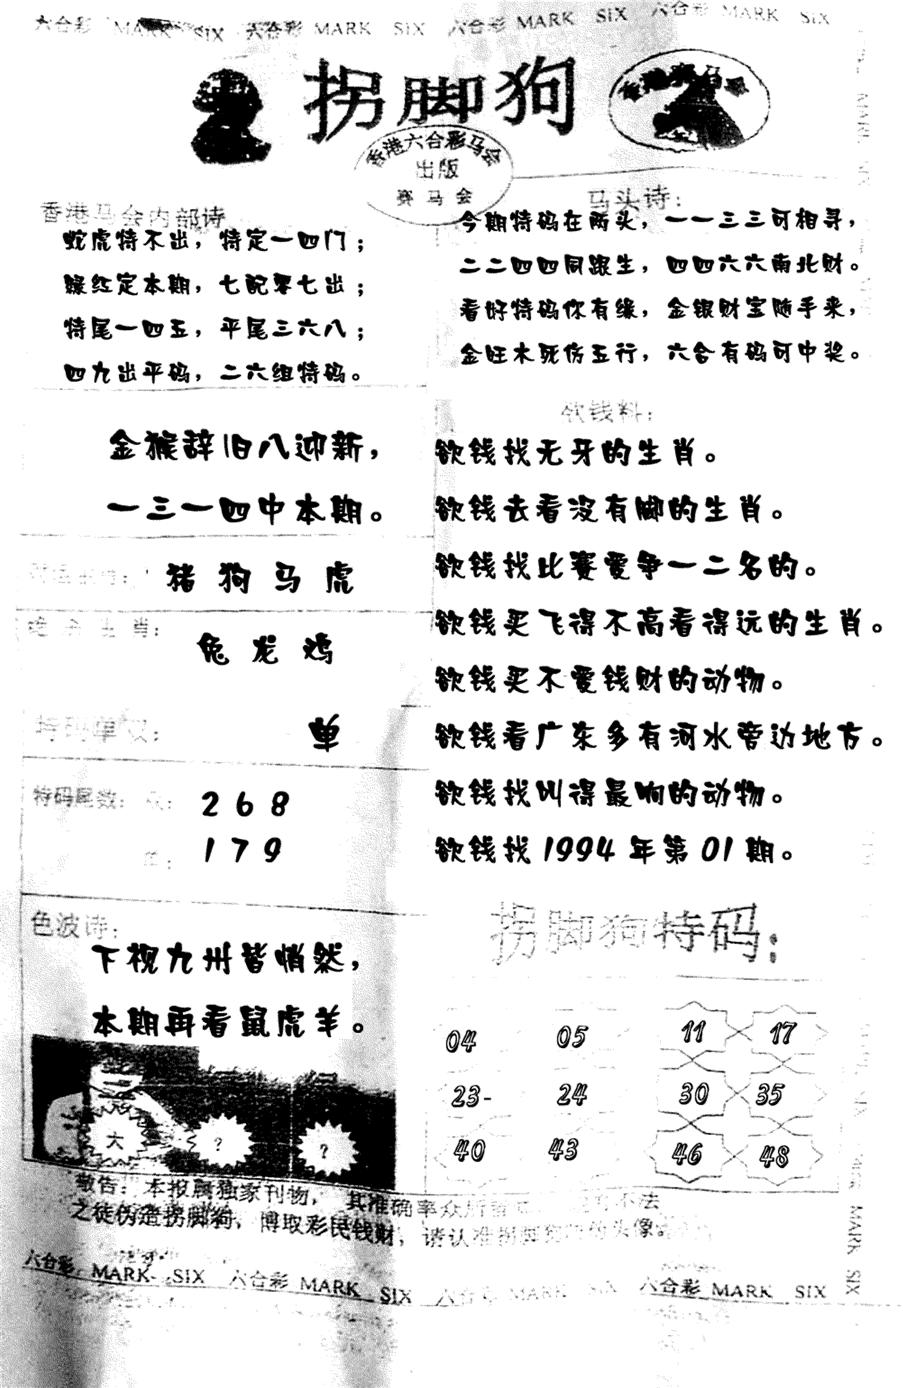 六合彩 MARK SIX 六合彩 MARK SIX 六合彩 MARK SIX 六合彩 MARK SIX
拐脚狗
香港赛马会
香港六合彩马会
出版
赛马会
香港马会内部诗
蛇虎特不出，特定一四门；
绿红定本期，七配零七出；
特尾一四五，平尾三六八；
四九出平码，二六组特码。
马头诗：
今期特码在两头，一一三三可相寻，
二二四四同跟生，四四六六南北财。
看好特码你有缘，金银财宝随手来，
金旺木死伤五行，六合有码可中奖。
金猴辞旧八迎新，
一三一四中本期。
猪 狗 马 虎
绝杀生肖：
兔 龙 鸡
特码单双：
单
特码尾数：双：
2 6 8
单：
1 7 9
欲钱料：
欲钱找无牙的生肖。
欲钱去看没有脚的生肖。
欲钱找比赛爱争一二名的。
欲钱买飞得不高看得远的生肖。
欲钱买不爱钱财的动物。
欲钱看广东多有河水旁边地方。
欲钱找叫得最响的动物。
欲钱找 1994 年第 01 期。
色波诗：
下视九州皆悄然，
本期再看鼠虎羊。
大 ? ?
拐脚狗特码：
04 05 11 17
23- 24 30 35
40 43 46 48
敬告：本报属独家刊物，其准确率众所皆 不法
之徒伪造拐脚狗，博取彩民钱财，请认准拐脚狗 的头像
六合彩 MARK SIX 六合彩 MARK SIX 六合彩 MARK SIX 六合彩 MARK SIX
MARK SIX